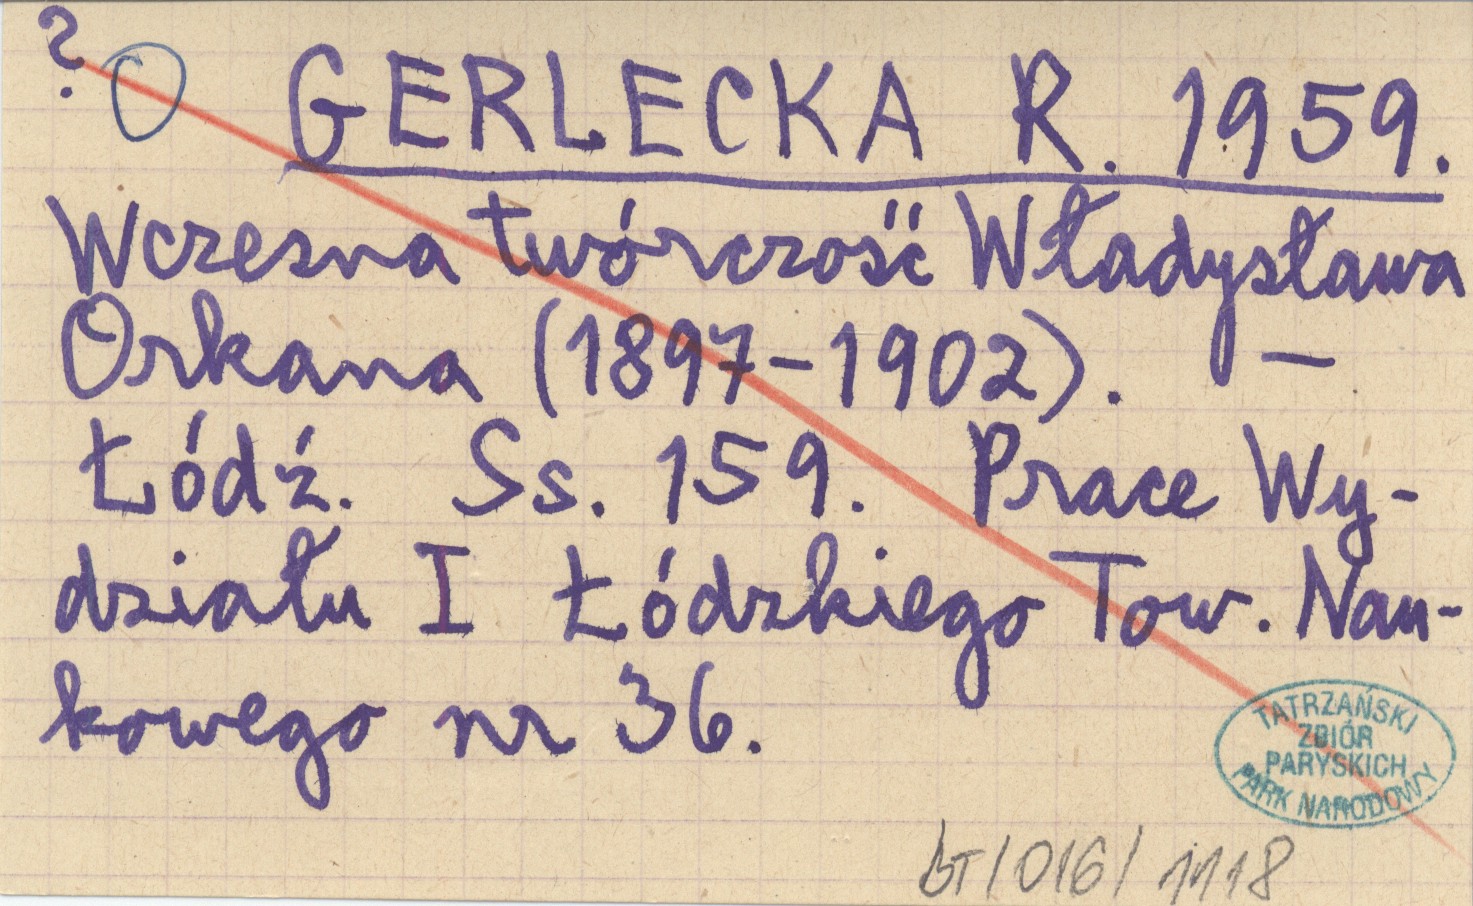 ?
GERLECKA R. 1959.
Wczesna twórczość Władysława
Orkana (1897-1902). —
Łódź. Ss. 159. Prace Wy-
działu I Łódzkiego Tow. Nau-
kowego nr 36.
TATRZAŃSKI
ZBIÓR
PARYSKICH
PARK NARODOWY
BT/016/1118